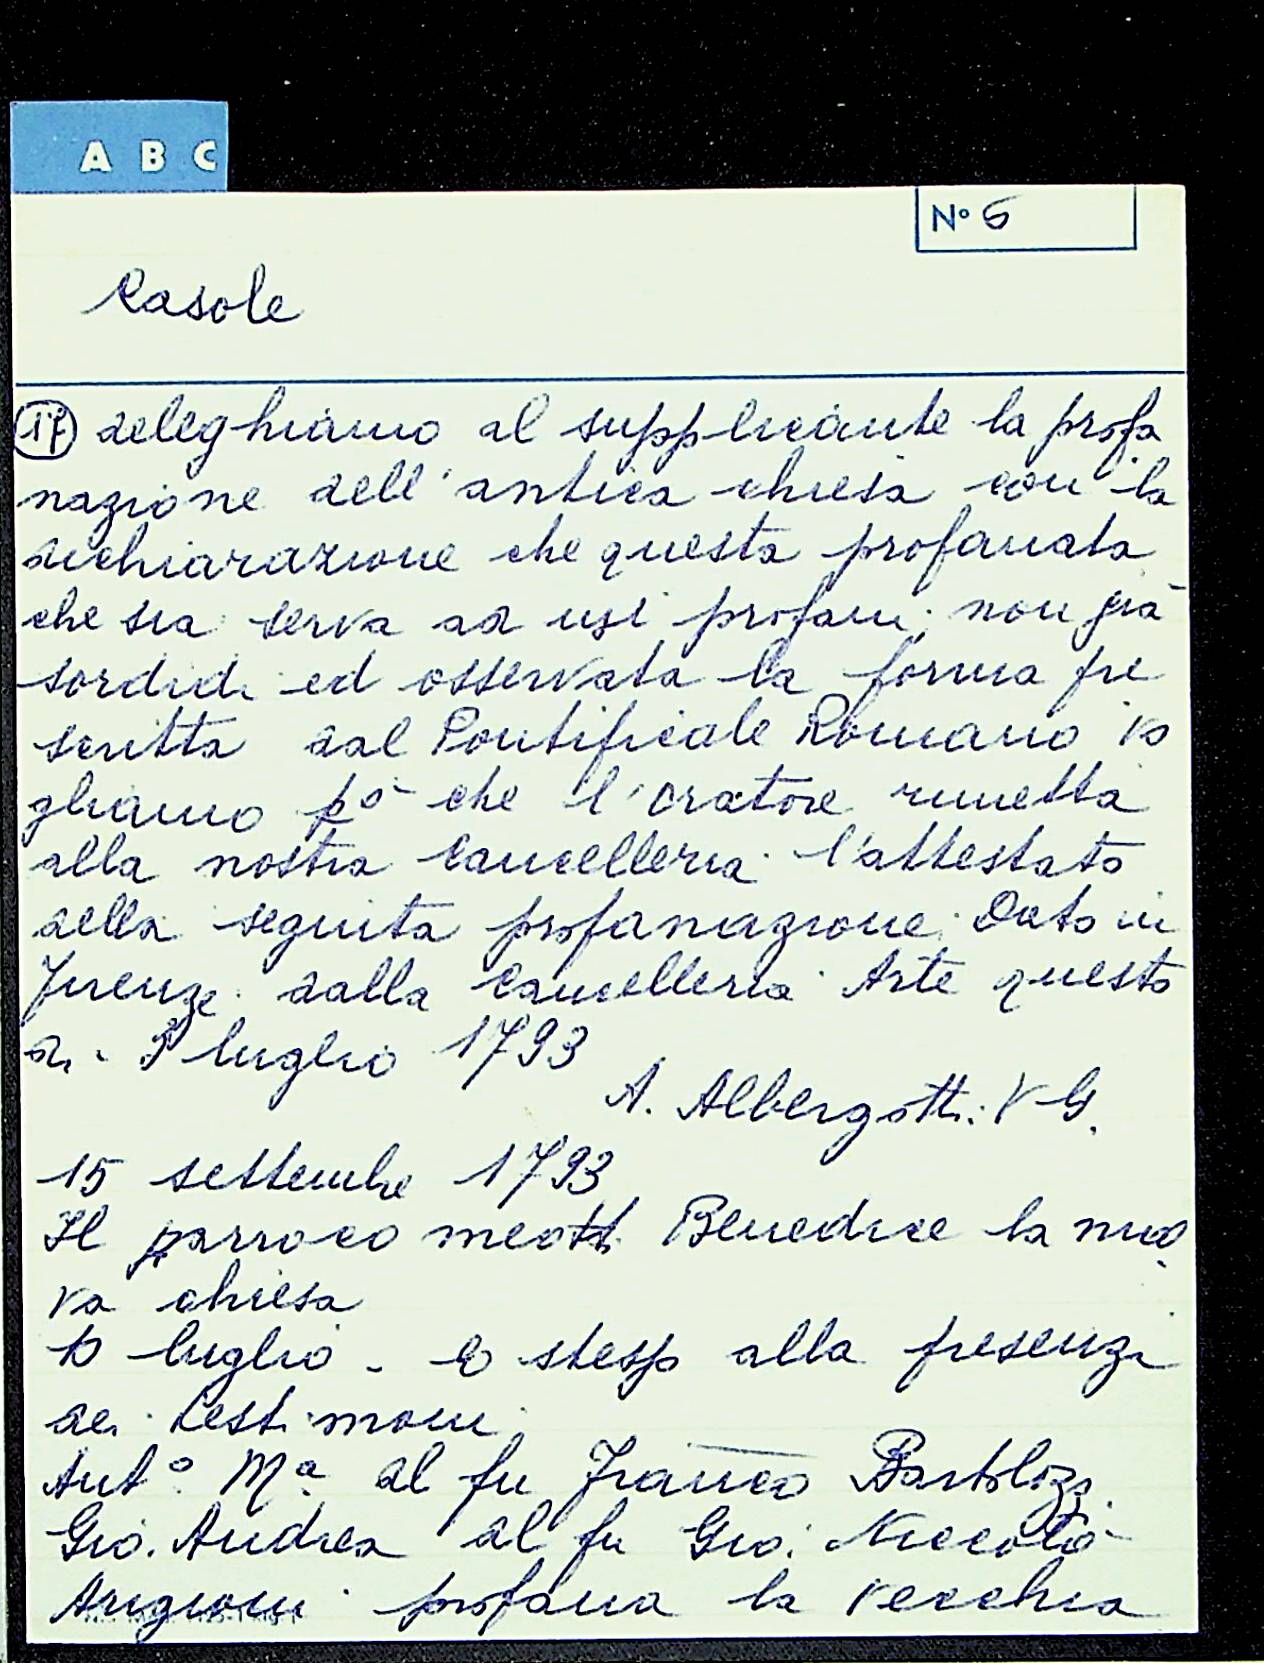 A B C
N° 6
Casole
17 deleghiamo al supplicante la profa
nazione dell'antica chiesa con la
dichiarazione che questa profanata
che sia serva ad usi profani, non già
sordidi ed osservata la forma pre
scritta dal Pontificale Romano vo
gliamo pò che l'oratore rimetta
alla nostra Cancelleria l'attestato
della seguita profanazione. Dato in
Firenze dalla Cancelleria Arte questo
di 5 luglio 1793
A. Albergotti. V G.
15 settembre 1793
Il parroco Benedice la nuo
va chiesa
10 luglio - Lo stesso alla presenza
dei testimoni
Ant° Mª al fu Franco Bartolozzi
Gio. Andrea al fu Gio. Niccolò
Arigioni profana la vecchia